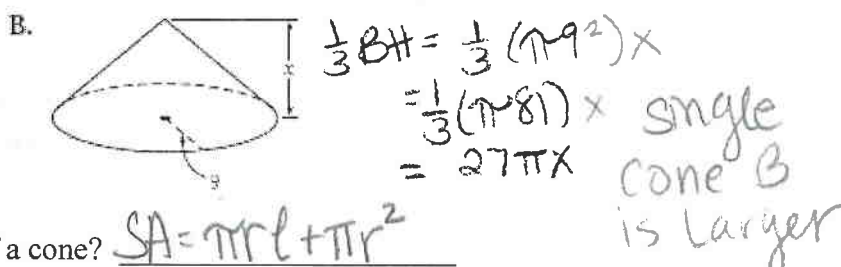 B.
x
9
1/3 BH = 1/3 (π9²) x
= 1/3 (π81) x
= 27πx
single
cone B
is larger
a cone? SA = πrl + πr²